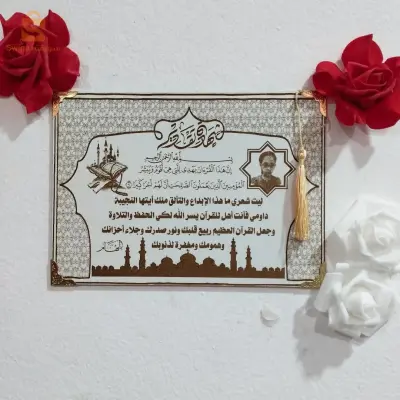 شهادة تقدير
بسم الله الرحمن الرحيم
إن هذا القرآن يهدي للتي هي أقوم ويبشر
المؤمنين الذين يعملون الصالحات أن لهم أجرا كبيرا
ليت شعري ما هذا الإبداع والتألق منك أيتها النجيبة
داومي فأنت أهل للقرآن يسر الله لكي الحفظ والتلاوة
وجعل القرآن العظيم ربيع قلبك ونور صدرك وجلاء أحزانك
وهمومك ومغفرة لذنوبك